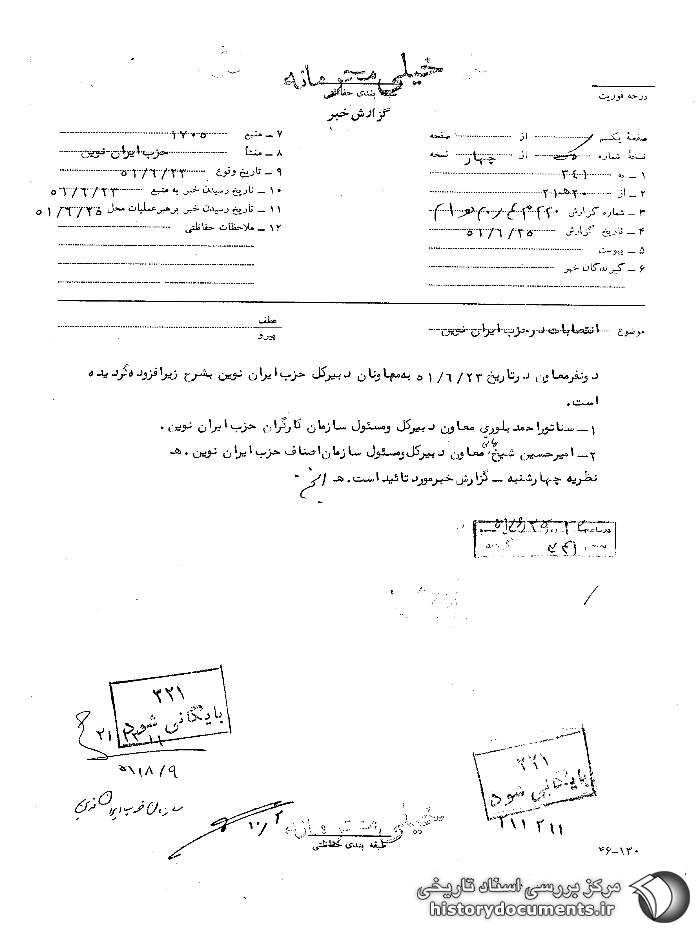 خیلی محرمانه
طبقه بندی حفاظتی
گزارش خبر
درجه فوریت
صفحهٔ یکم از صفحه
نسخهٔ شماره از چهار نسخه
۱ ــ به ۳۴۱
۲ ــ از ۲۱ﻫ۲۰
۳ ــ شماره گزارش
۴ ــ تاریخ گزارش ۵۱/۶/۲۵
۵ ــ پیوست
۶ ــ گیرندگان خبر
۷ ــ منبع ۱۲۰۵
۸ ــ منشأ حزب ایران نوین
۹ ــ تاریخ وقوع ۵۱/۶/۲۳
۱۰ ــ تاریخ رسیدن خبر به منبع ۵۱/۶/۲۳
۱۱ ــ تاریخ رسیدن خبر برهبر عملیات محل ۵۱/۶/۲۵
۱۲ ــ ملاحظات حفاظتی
موضوع انتصابات در حزب ایران نوین
عطف
پیرو
دو نفر معاون در تاریخ ۵۱/۶/۲۳ به معاونان دبیرکل حزب ایران نوین بشرح زیر افزوده گردیده
است.
۱ــ سناتور احمد بلوری معاون دبیرکل ومسئول سازمان کارگران حزب ایران نوین.
۲ــ امیرحسین شیخ بهائی معاون دبیرکل ومسئول سازمان اصناف حزب ایران نوین. هـ
نظریه چهارشنبه ــ گزارش خبر مورد تائید است. هـ
۳۲۱
بایگانی شود
۲۱ ۲۲ ۱۱
۵۱/۸/۹
۳۲۱
بایگانی شود
۲۱۱ ۲۱۱
۱۰/۲
خیلی محرمانه
طبقه بندی حفاظتی
۴۶-۱۳۰
مرکز بررسی اسناد تاریخی
historydocuments.ir